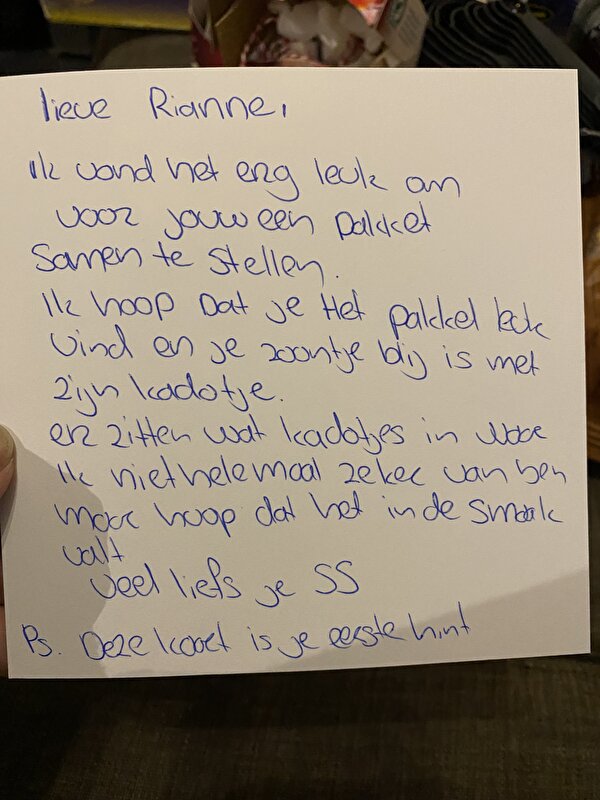 lieve Rianne,
Ik vond het erg leuk om
voor jouw een pakket
Samen te stellen.
Ik hoop Dat je Het pakket leuk
vind en je zoontje blij is met
zijn kadotje.
er zitten wat kadotjes in waar
Ik niet helemaal zeker van ben
maar hoop dat het in de smaak
valt
veel liefs je SS
Ps. Deze kaart is je eerste hint